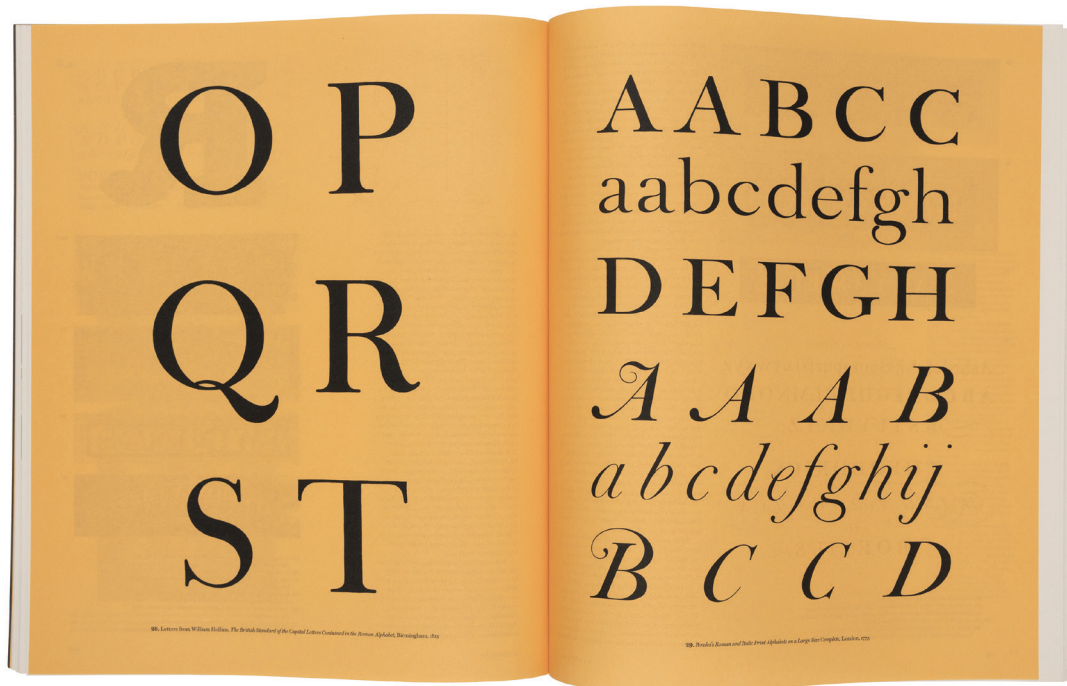 O P
Q R
S T
Letters from William Hollins, The British Standard of the Capital Letters Contained in the Roman Alphabet, Birmingham,
A A B C C
aabcdefgh
D E F G H
A A A B
abcdefghij
B C C D
Roman and Italic Print Alphabets on a Large Size Complete, London,